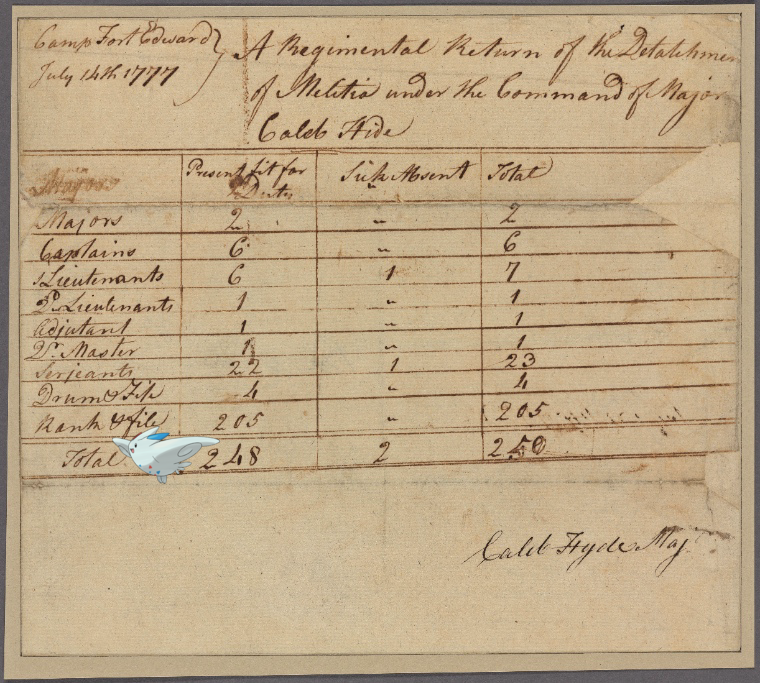 Camp Fort Edward
July 14th 1777
A Regimental Return of the Detatchmen
of Melitia under the Command of Major
Caleb Hide
Majors Present fit for Duty Sick Absent Total
Majors 2 " 2
Captains 6 " 6
1 Lieutenants 6 1 7
2d Lieutenants 1 " 1
Adjutant 1 " 1
Qr Master 1 " 1
Serjeants 22 1 23
Drum & Fife 4 " 4
Rank & file 205 " 205
Total 248 2 250
Caleb Hyde Maj